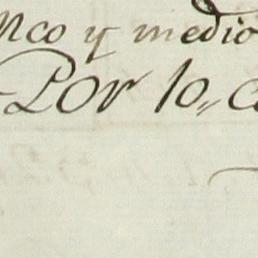 nco y medio
Por lo, c